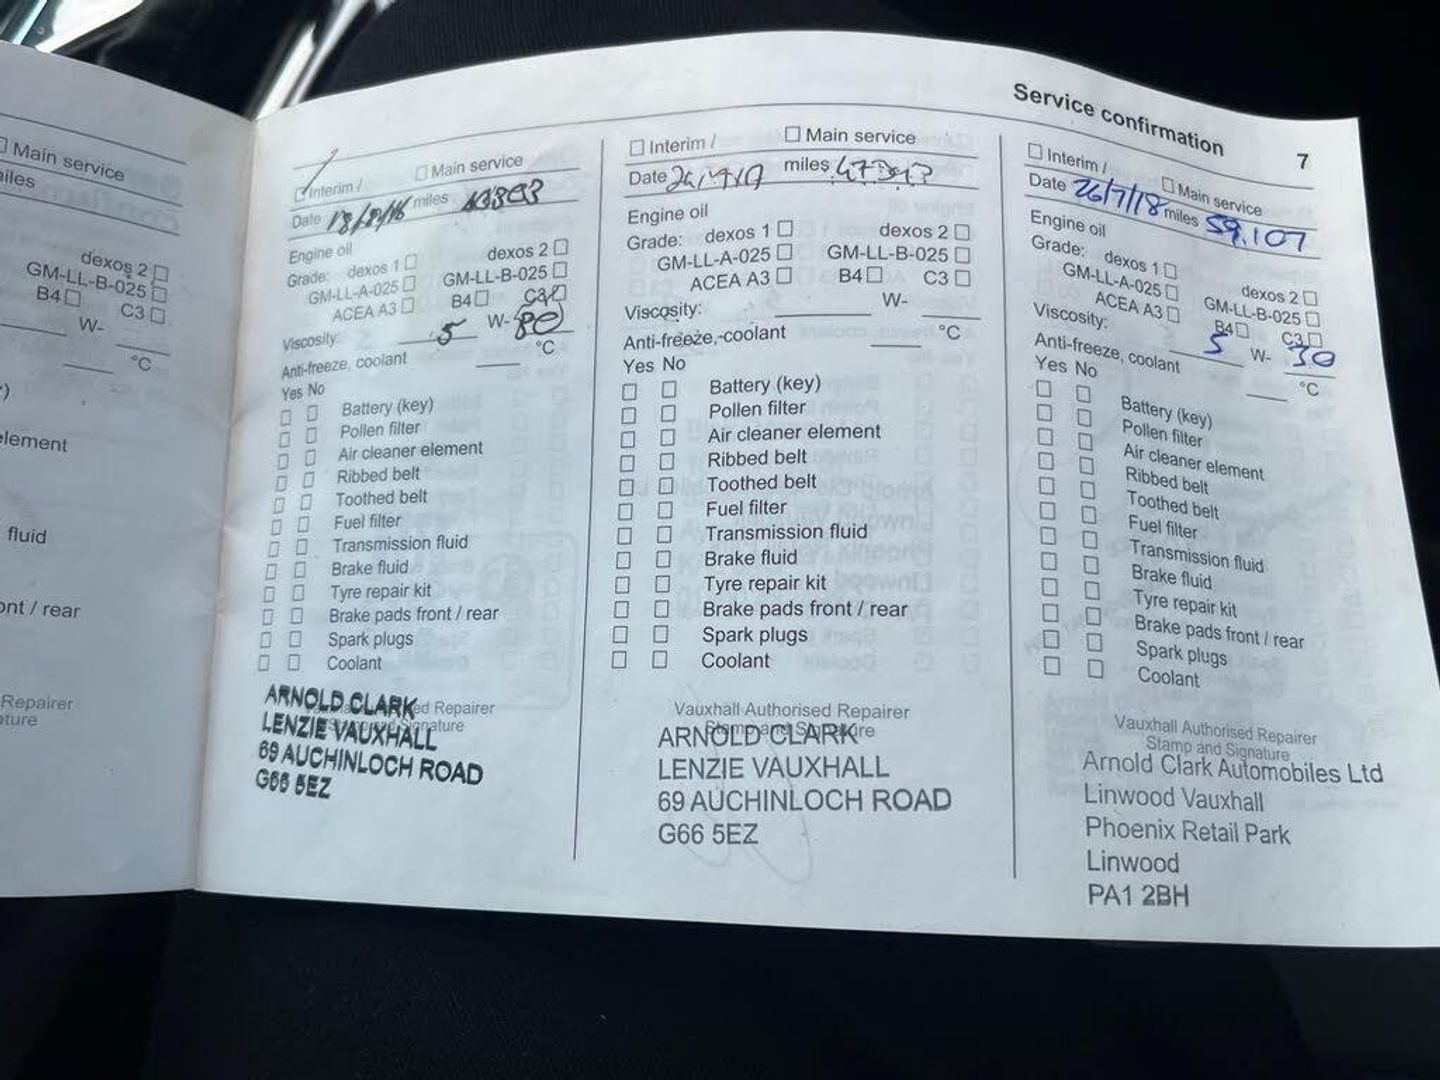 Service confirmation 7
Main service
iles
dexos 2
GM-LL-B-025
B4 C3
W-
°C
y)
element
fluid
ont / rear
Repairer
ature
Interim / Main service
Date miles
Engine oil
Grade: dexos 1 dexos 2
GM-LL-A-025 GM-LL-B-025
ACEA A3 B4 C3
Viscosity: 5 W-
Anti-freeze, coolant °C
Yes No
Battery (key)
Pollen filter
Air cleaner element
Ribbed belt
Toothed belt
Fuel filter
Transmission fluid
Brake fluid
Tyre repair kit
Brake pads front / rear
Spark plugs
Coolant
Vauxhall Authorised Repairer
Stamp and Signature
ARNOLD CLARK
LENZIE VAUXHALL
69 AUCHINLOCH ROAD
G66 5EZ
Interim / Main service
Date miles
Engine oil
Grade: dexos 1 dexos 2
GM-LL-A-025 GM-LL-B-025
ACEA A3 B4 C3
Viscosity: W-
Anti-freeze, coolant °C
Yes No
Battery (key)
Pollen filter
Air cleaner element
Ribbed belt
Toothed belt
Fuel filter
Transmission fluid
Brake fluid
Tyre repair kit
Brake pads front / rear
Spark plugs
Coolant
Vauxhall Authorised Repairer
Stamp and Signature
ARNOLD CLARK
LENZIE VAUXHALL
69 AUCHINLOCH ROAD
G66 5EZ
Interim / Main service
Date 26/7/18 miles 59,107
Engine oil
Grade: dexos 1 dexos 2
GM-LL-A-025 GM-LL-B-025
ACEA A3 B4 C3
Viscosity: 5 W- 30
Anti-freeze, coolant °C
Yes No
Battery (key)
Pollen filter
Air cleaner element
Ribbed belt
Toothed belt
Fuel filter
Transmission fluid
Brake fluid
Tyre repair kit
Brake pads front / rear
Spark plugs
Coolant
Vauxhall Authorised Repairer
Stamp and Signature
Arnold Clark Automobiles Ltd
Linwood Vauxhall
Phoenix Retail Park
Linwood
PA1 2BH